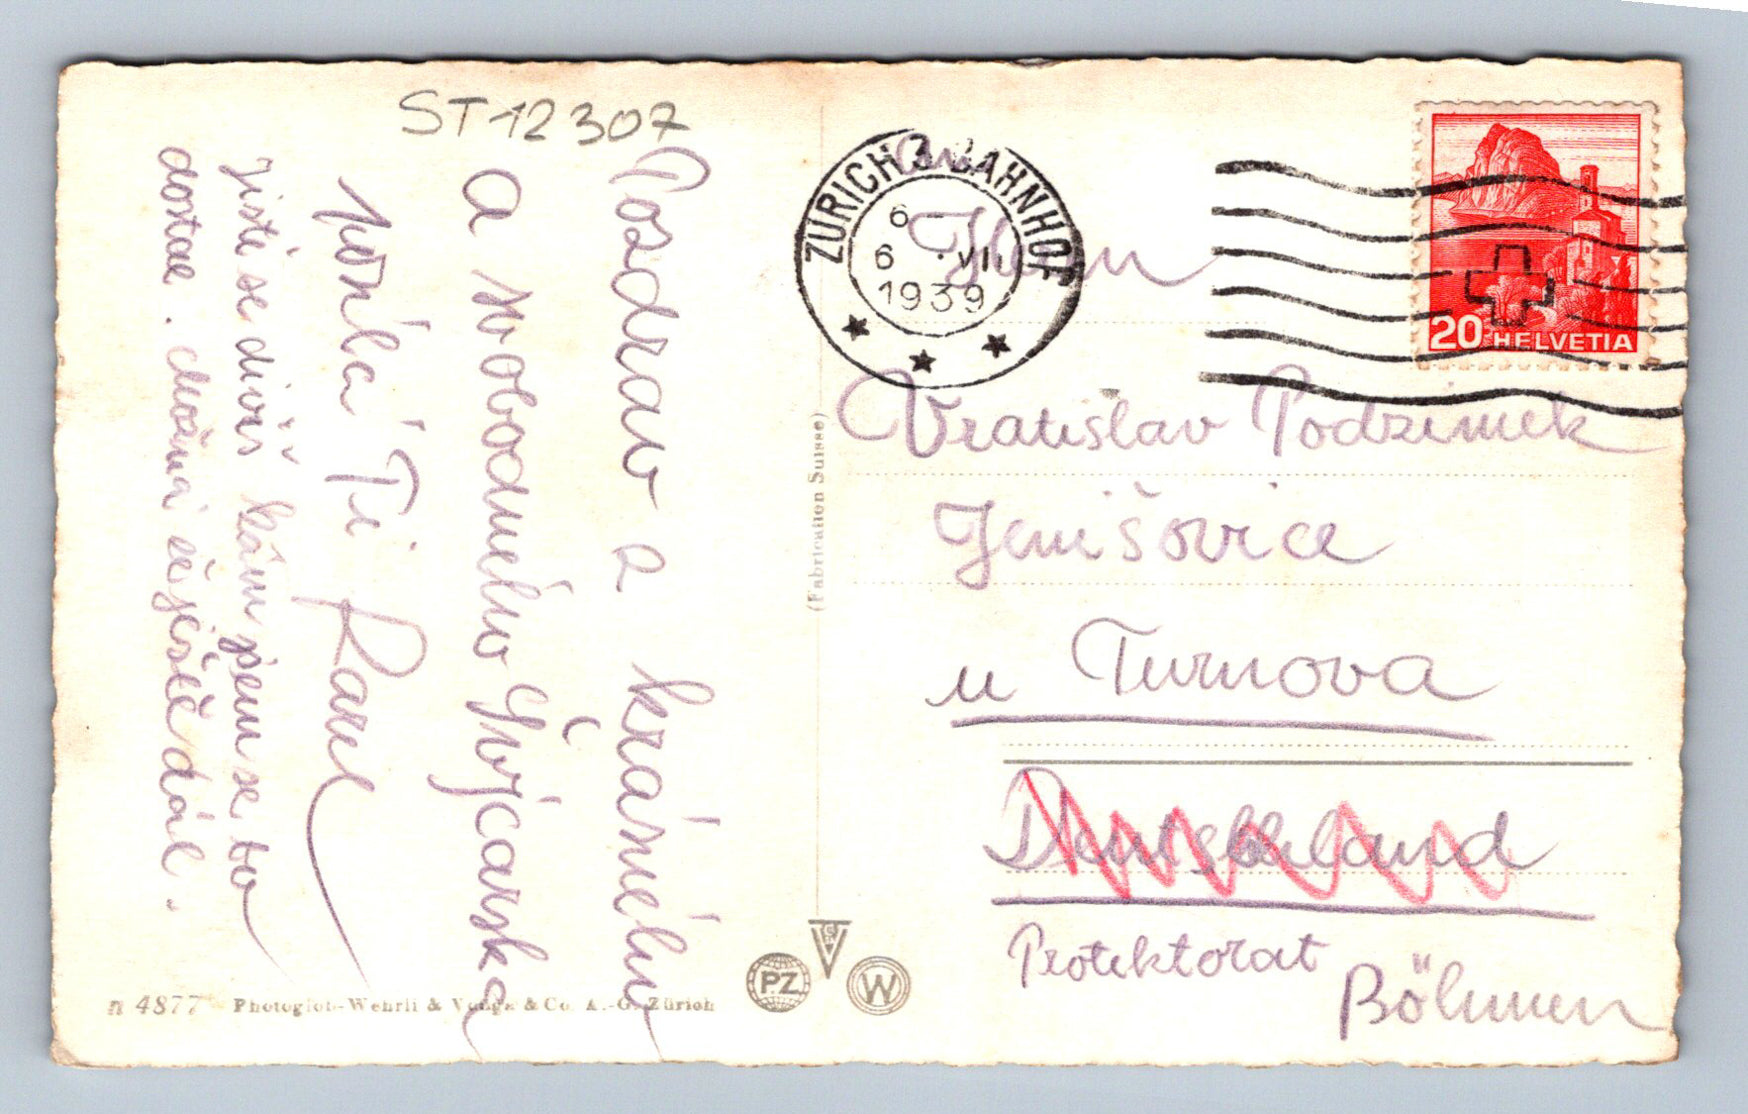 ST 12 307
Pozdrav z krásného
a svobodného Švýcarska
posílá Ti Karel
jistě se divíš kam jsem se to
dostal. Možná se ještě dál.
(Fabrication Suisse)
n 4877 Photoglob-Wehrli & Vouga & Co. A.-G. Zürich
PZ
V
W
ZÜRICH 3 BAHNHOF
6
6 . VI.
1939
20 HELVETIA
Herrn
Vratislav Podzimek
Jenišovice
u Turnova
Deutschland
Protektorat
Böhmen